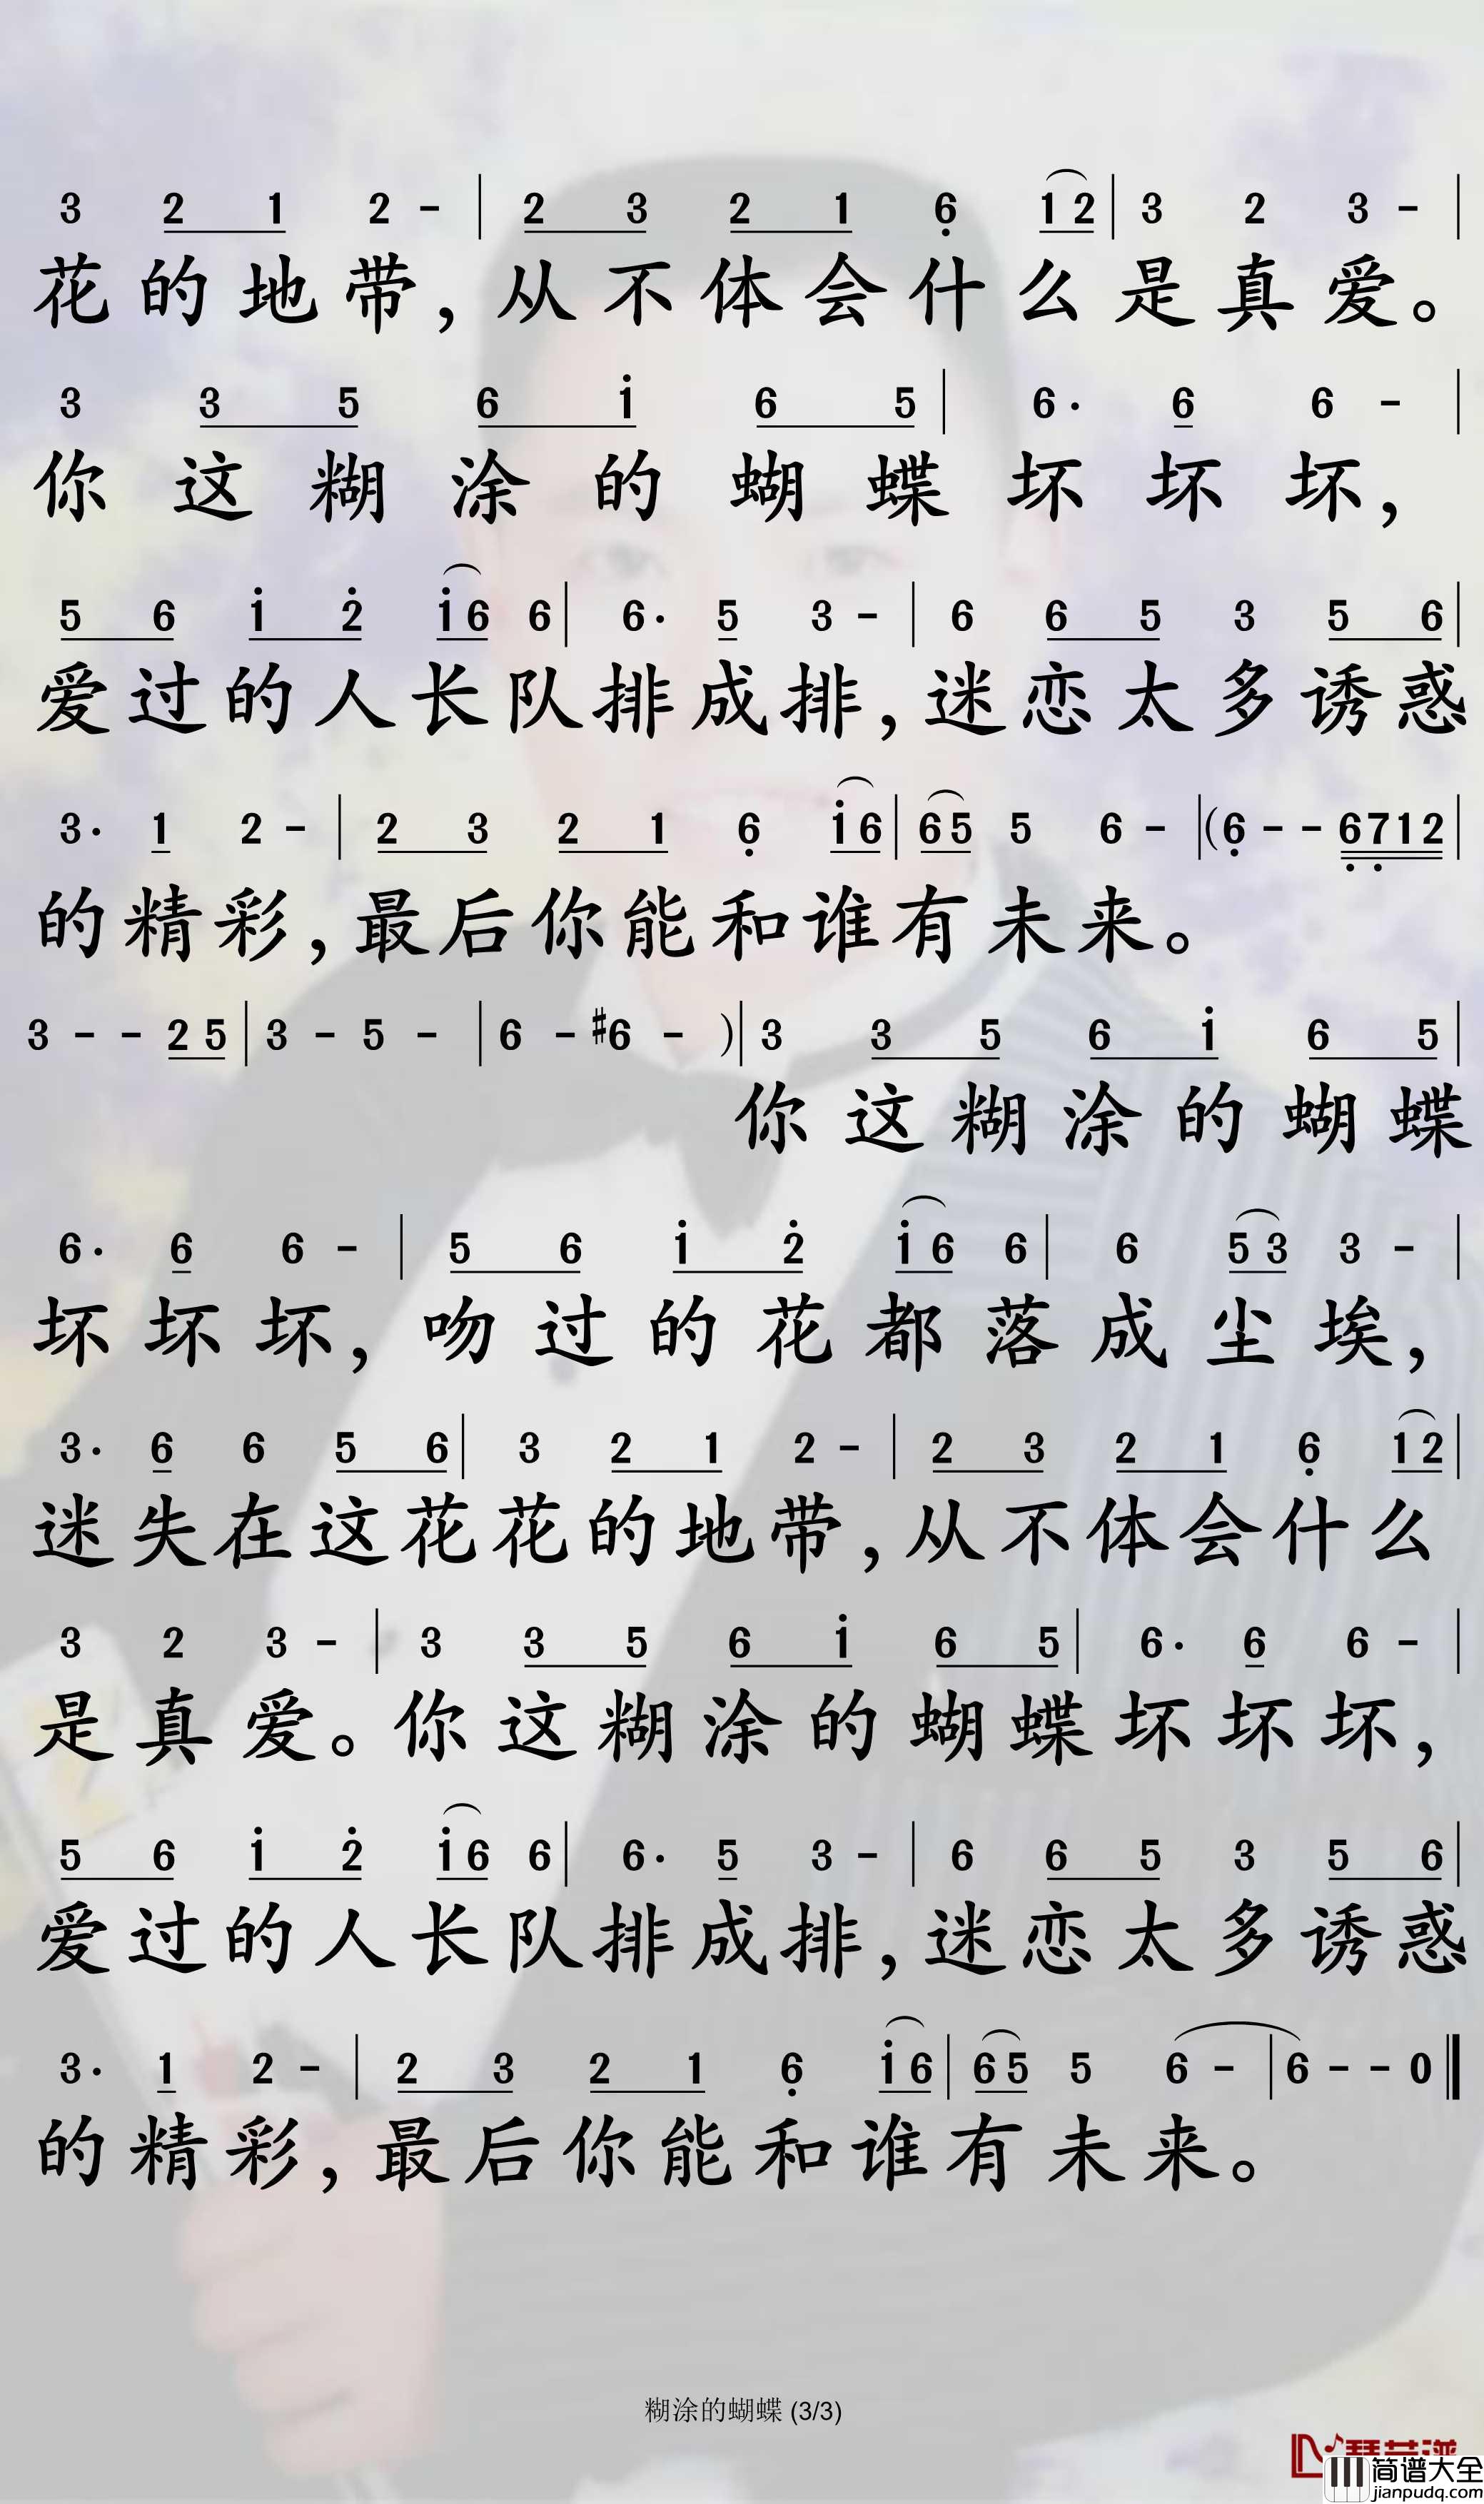 3 2 1 2 - | 2 3 2 1 6̣ 1 2 | 3 2 3 - |
花的地带，从不体会什么是真爱。
3 3 5 6 i 6 5 | 6· 6 6 - |
你这糊涂的蝴蝶坏坏坏，
5 6 i 2̇ i 6 6 | 6· 5 3 - | 6 6 5 3 5 6 |
爱过的人长队排成排，迷恋太多诱惑
3· 1 2 - | 2 3 2 1 6̣ i 6 | 6 5 5 6 - | (6̣ - - 6̣ 7̣ 1 2 |
的精彩，最后你能和谁有未来。
3 - - 2 5 | 3 - 5 - | 6 - #6 - ) | 3 3 5 6 i 6 5 |
你这糊涂的蝴蝶
6· 6 6 - | 5 6 i 2̇ i 6 6 | 6 5 3 3 - |
坏坏坏，吻过的花都落成尘埃，
3· 6 6 5 6 | 3 2 1 2 - | 2 3 2 1 6̣ 1 2 |
迷失在这花花的地带，从不体会什么
3 2 3 - | 3 3 5 6 i 6 5 | 6· 6 6 - |
是真爱。你这糊涂的蝴蝶坏坏坏，
5 6 i 2̇ i 6 6 | 6· 5 3 - | 6 6 5 3 5 6 |
爱过的人长队排成排，迷恋太多诱惑
3· 1 2 - | 2 3 2 1 6̣ i 6 | 6 5 5 6 - | 6 - - 0 ‖
的精彩，最后你能和谁有未来。
糊涂的蝴蝶 (3/3)
简谱大全
jianpudq.com